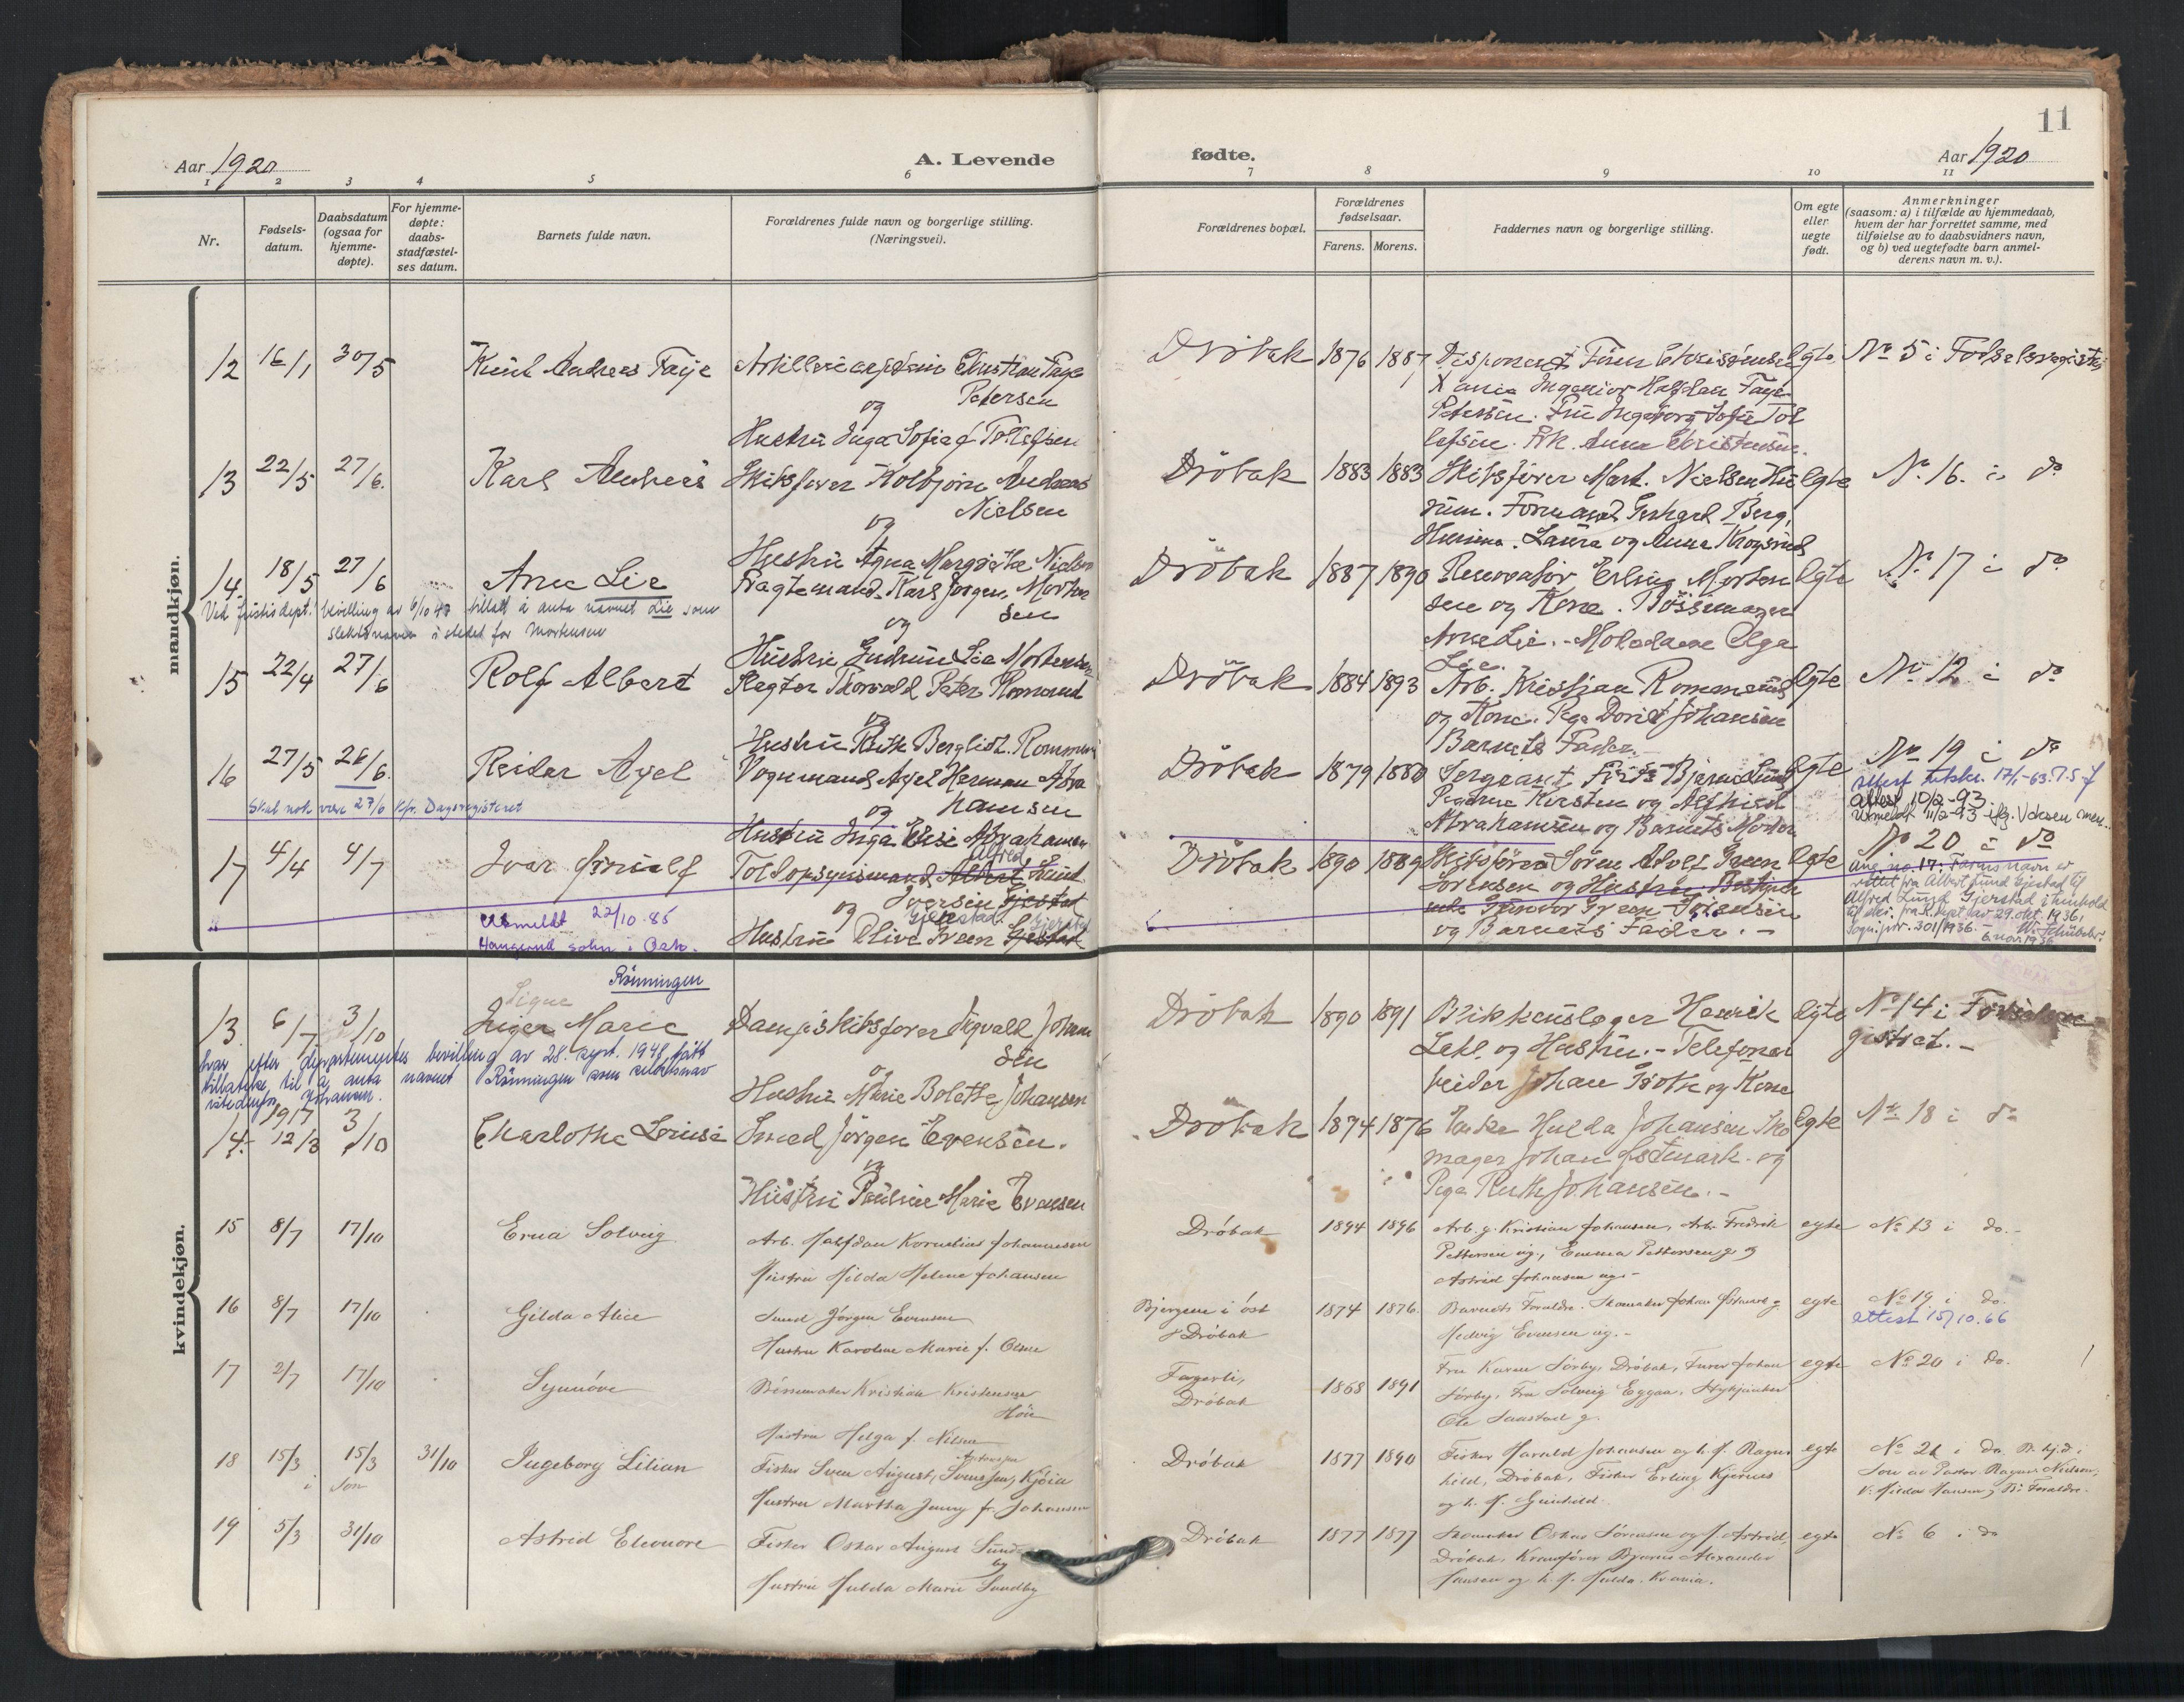 11
Aar 1920
A. Levende
fødte.
Aar 1920
1 2 3 4 5 6 7 8 9 10 11
Nr.
Fødsels-
datum.
Daabsdatum
(ogsaa for
hjemme-
døpte).
For hjemme-
døpte:
daabs-
stadfæstel-
ses datum.
Barnets fulde navn.
Forældrenes fulde navn og borgerlige stilling.
(Næringsvei).
Forældrenes bopæl.
Forældrenes
fødselsaar.
Farens. Morens.
Faddernes navn og borgerlige stilling.
Om egte
eller
uegte
født.
Anmerkninger
(saasom: a) i tilfælde av hjemmedaab,
hvem der har forrettet samme, med
tilføielse av to daabsvidners navn,
og b) ved uegtefødte barn anmel-
derens navn m. v.).
mandkjøn.
12 16/1 30/5 Andreas Faye Christian Faye
Petersen
og
Hustru Inga Sofie f. Tollefsen
Dröbak 1876 1887 Disponent Finn
Ingeniør Halfdan Faye
Petersen. Fru Ingeborg Sofie Tol
lefsen. Frk. Anna
egte No 5 i
13 22/5 27/6. Karl Andreas Skibsfører Kolbjørn Andreas
Nielsen
og
Hustru Agna Margrethe Nielsen
Dröbak 1883 1883 Skibsfører Mart. Nielsen
Formand Berg,
Laura og Anna
egte No 16. i do
14. 18/5 27/6 Arne Lie Fragtemand Karl Jørgen Morten
sen
og
Hustru Gudrun Lie Mortensen
Ved justisdept. bevilling av 6/10 47 tillatt å anta navnet Lie som
slektsnavn i stedet for Mortensen
Dröbak 1887 1890 Erling Morten
sen og Kone. Bössemager
Arne Lie. Olga
Lie.
egte No 17 i do
15 22/4 27/6 Rolf Albert Thorvald Peter
og
Hustru Berglioth
Dröbak 1884 1893 Arb. Kristian
og Kone. Pige Johansen
Barnets Fader.
egte No 12 i do
16 27/5 26/6. Reidar Axel Vognmand Axel Herman Abra
hamsen
og
Hustru Inga Elise Abrahamsen
Skal nok være 27/6 kfr. Dagsregisteret
Dröbak 1879 1880 Sergeant Bjarne Lund
Pigerne Kirsten og
Abrahamsen og Barnets Moder
egte No 19 i do
Attest 10/2-93
17 4/4 4/7 Ivar Albert Lund
Alfred
Iversen Gjestad
og Gjerstad
Hustru Olive Green Gjestad
Gjerstad
Utmeldt 22/10-85
Dröbak 1890 1889 Skibsfører Søren Adolf Green
Sørensen og Hustru.
Gunvor Green Sørensen
og Barnets Fader. -
egte No 20 i do
Ang. no. 17: Farens navn er
rettet fra Albert Lund Gjestad til
Alfred Lund Gjerstad i henhold
til skr. fra av 29. okt. 1936,
301/1936.
6. nov. 1936
kvindekjøn.
Rønningen
Signe
13. 6/7 3/10 Inger Marie Dampskibsfører Sigvald Johan
sen
og
Hustru Marie Bolette Johansen
har efter departementets bevilling av 28. sept. 1948 fått
tillatelse til å anta navnet Rønningen som slektsnavn
istedenfor Johansen.
Dröbak 1890 1891 Blikkenslager Henrik
og Hustru. - Telefonar
beider Johan og Kone
egte No 14 i
gistret. -
1917
14. 12/3 3/10 Charlotte Lovise Smed Jørgen Evensen.
og
Hustru Pauline Marie Evensen
Dröbak 1874 1876 Enke Hulda Johansen Sko
mager Johan Østmark. og
Pige Ruth Johansen. -
egte No 18 i do
15 8/7 17/10 Erna Solveig Arb. Halfdan Kornelius Johannesen
Hustru Hilda Helene Johansen
Drøbak 1894 1896 Arb. g. Kristian Johansen, Arb. Fredrik
Pettersen ug., Emma Pettersen g. og
Astrid Johansen ug. -
egte No 13 i do. -
16 8/7 17/10 Gilda Alice Smed Jørgen Evensen
Hustru Karoline Marie f. Olsen
Bjergene i øst
f. Drøbak 1874 1876. Barnets Foraldre. Skomaker Johan Østmark g.
Hedvig Evensen ug. -
egte No 19 i do.
attest 15/10.66
17 2/7 17/10 Synnöve Børsemaker Kristian Kristensen
Høie
Hustru Helga f. Nilsen
Fagerli,
Drøbak 1868 1891 Fru Karen Sørby, Drøbak, Furer Johan
Sørby, Fru Solveig Eggan,
Ole g.
egte No 20 i do.
18 15/3 15/3 31/10 Ingeborg Lilian Fisker Sven August, Svenssen, Kjøia
Hustru Martha Jenny f. Johansen
i Son
Drøbak 1877 1890 Fisker Harald Johansen og h. H. Ragn
hild, Drøbak, Fisker Erling Kjernes
og h. H. Gunhild.
egte No 21 i do. B. hj.d. i
Son av Pastor Ragnar Nielsen,
V. Hilda Hansen, B. Foraldre.
19 5/3 31/10 Astrid Eleonore Fisker Oskar August Sund
by
Hustru Hulda Marie Sundby
Drøbak 1877 1877 Skomaker Oskar Sørensen og H. Astrid,
Drøbak, Kranfører Bjarne Alexander
Hansen og h. H. Hulda. Kr.ania.
egte No 6 i do